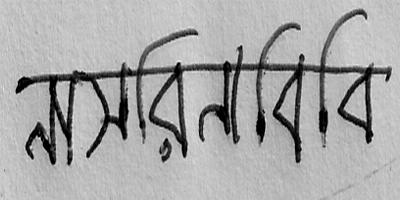 নাসরিনা বিবি